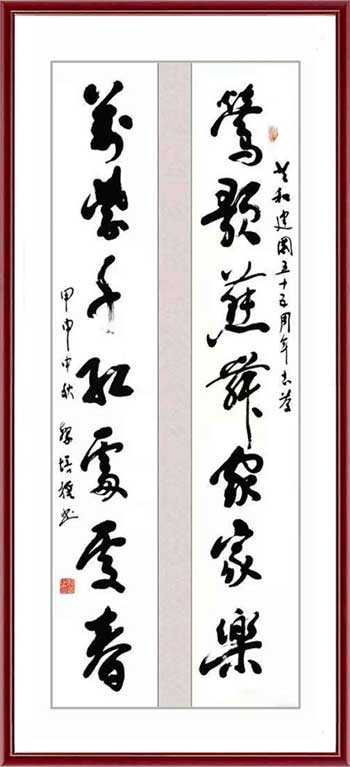 共和建国五十五周年志゠
鶯歌燕舞家家樂
萬紫千紅處處春
甲申中秋 培 书